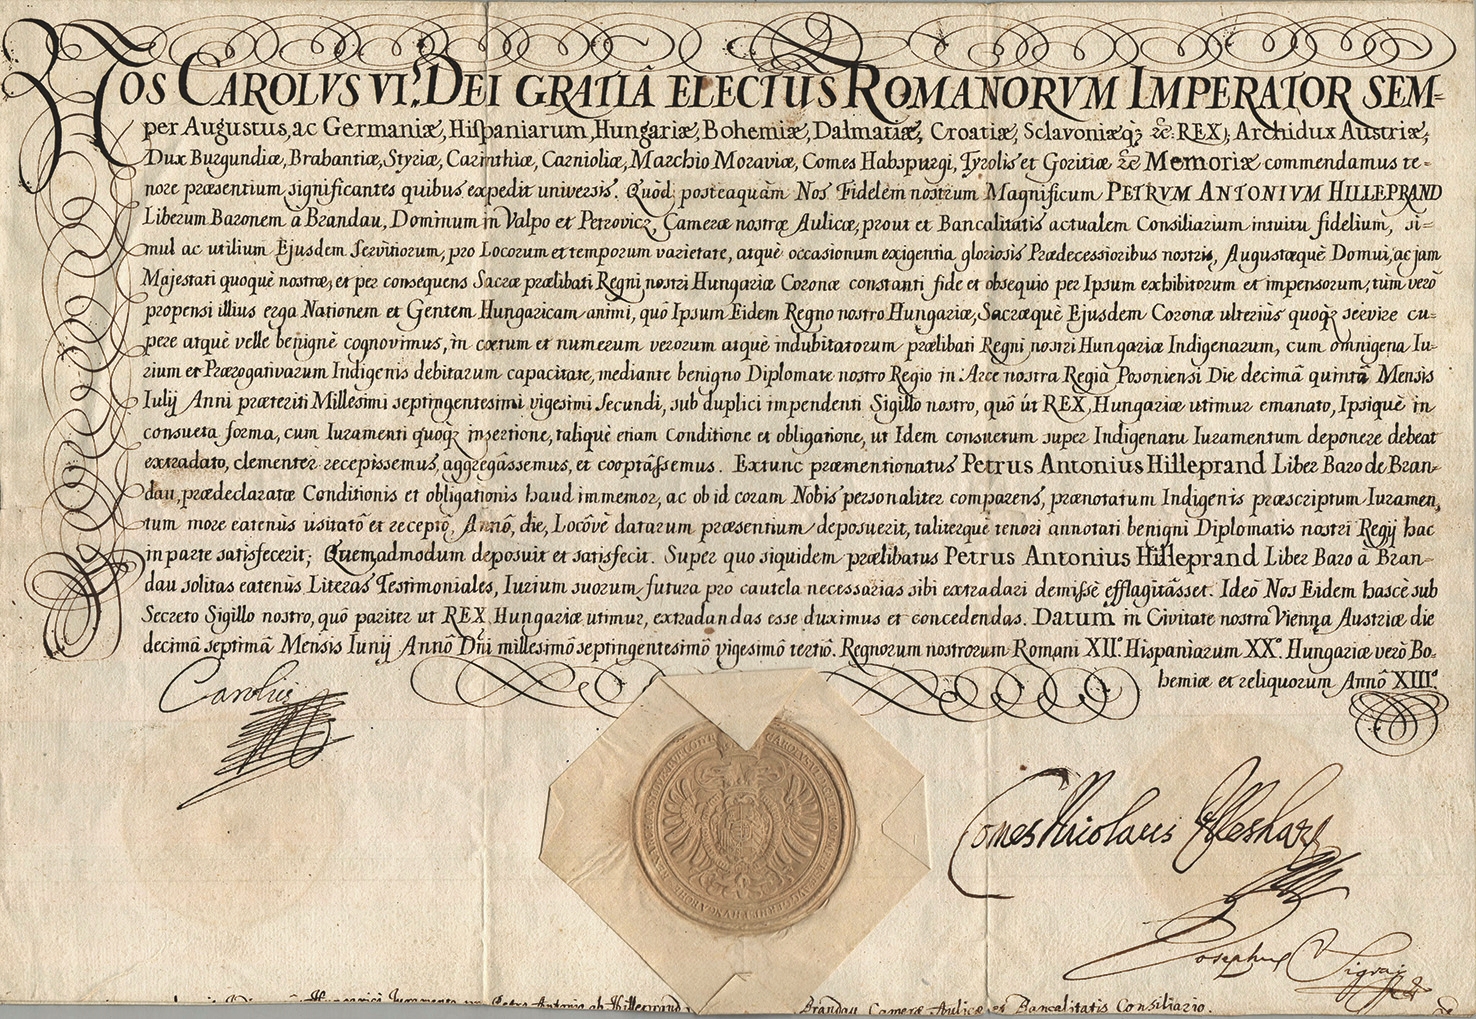 NOS CAROLVS VI.s DEI GRATIÂ ELECTUS ROMANORVM IMPERATOR SEM=
per Augustus, ac Germaniæ, Hispaniarum, Hungariæ, Bohemiæ, Dalmatiæ, Croatiæ, Sclavoniæq3 &c: REX; Archidux Austriæ,
Dux Burgundiæ, Brabantiæ, Styriæ, Carinthiæ, Carnioliæ, Marchio Moraviæ, Comes Habspurgi, Tyrolis et Goritiæ &c Memoriæ commendamus te=
nore præsentium significantes quibus expedit universis. Quòd, posteaquàm Nos Fidelem nostrum Magnificum PETRVM ANTONIVM HILLEPRAND
Liberum Baronem à Brandau, Dominum in Valpo et Petrovicz, Cameræ nostræ Aulicæ, prout et Bancalitatis actualem Consiliarium intuitu fidelium, si=
mul ac utilium Ejusdem Servitiorum, pro Locorum et temporum varietate, atquè occasionum exigentia gloriosis Prædecessioribus nostris, Augustæquè Domui, ac jam
Majestati quoquè nostræ, et per consequens Sacræ prælibati Regni nostri Hungariæ Coronæ constanti fide et obsequio per Ipsum exhibitorum et impensorum, tùm verò
propensi illius erga Nationem et Gentem Hungaricam animi, quô Ipsum Eidem Regno nostro Hungariæ, Sacræquè Ejusdem Coronæ ulteriùs quoq3 servire cu=
pere atquè velle benignè cognovimus, in cœtum et numerum verorum atquè indubitatorum prælibati Regni nostri Hungariæ Indigenarum, cum omnigena Iu=
rium et Prærogativarum Indigenis debitarum capacitate, mediante benigno Diplomate nostro Regio in Arce nostra Regiâ Posoniensi Die decimâ quintâ Mensis
Iulij Anni præteriti Millesimi septingentesimi vigesimi secundi, sub duplici impendenti Sigillo nostro, quô út REX Hungariæ utimur emanato, Ipsiquè in
consueta forma, cum Iuramenti quoq3 insertione, taliquè etiam Conditione et obligatione, ut Idem consuetum super Indigenatu Iuramentum deponere debeat
extradato, clementer recepissemus, aggregâssemus, et cooptâssemus. Extunc præmentionatus Petrus Antonius Hilleprand Liber Baro de Bran=
dau, prædeclaratæ Conditionis et obligationis haud immemor, ac ob id coram Nobis personaliter comparens, prænotatum Indigenis præscriptum Iuramen,
tum more eatenùs úsitatô et receptô, Annô, die, Locôvè datarum præsentium deposuerit, taliterquè tenori annotati benigni Diplomatis nostri Regij hac
in parte satisfecerit; Quemadmodum deposuit et satisfecit. Super quo siquidem prælibatus Petrus Antonius Hilleprand Liber Baro à Bran=
dau solitas eatenùs Literas Testimoniales, Iurium suorum futura pro cautela necessarias sibi extradari demissè efflagitâsset. Ideò Nos Eidem hasce sub
Secreto Sigillo nostro, quô pariter ut REX Hungariæ utimur, extradandas esse duximus et concedendas. Datum in Civitate nostra Vienna Austriæ die
decimâ septimâ Mensis Iunij Annô Dñi millesimô septingentesimô vigesimô tertiô. Regnorum nostrorum Romani XII.º Hispaniarum XX.º Hungariæ verò Bo=
hemiæ et reliquorum Annô XIII.º
Carolus
Comes Nicolaus Illeshazi
Josephus Sigrai
Hungaricâ Juramento Petro Antonio ab Hilleprand Brandau Cameræ Aulicæ et Bancalitatis Consiliario.